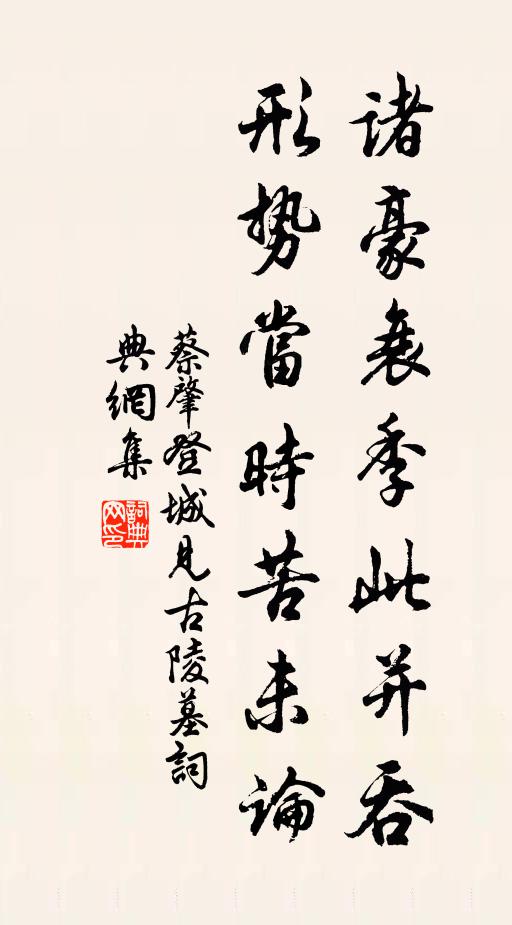 諸豪衰季此并吞
形势當時苦未論
蔡肇登城見古陵墓詞
典網集
詞典网印